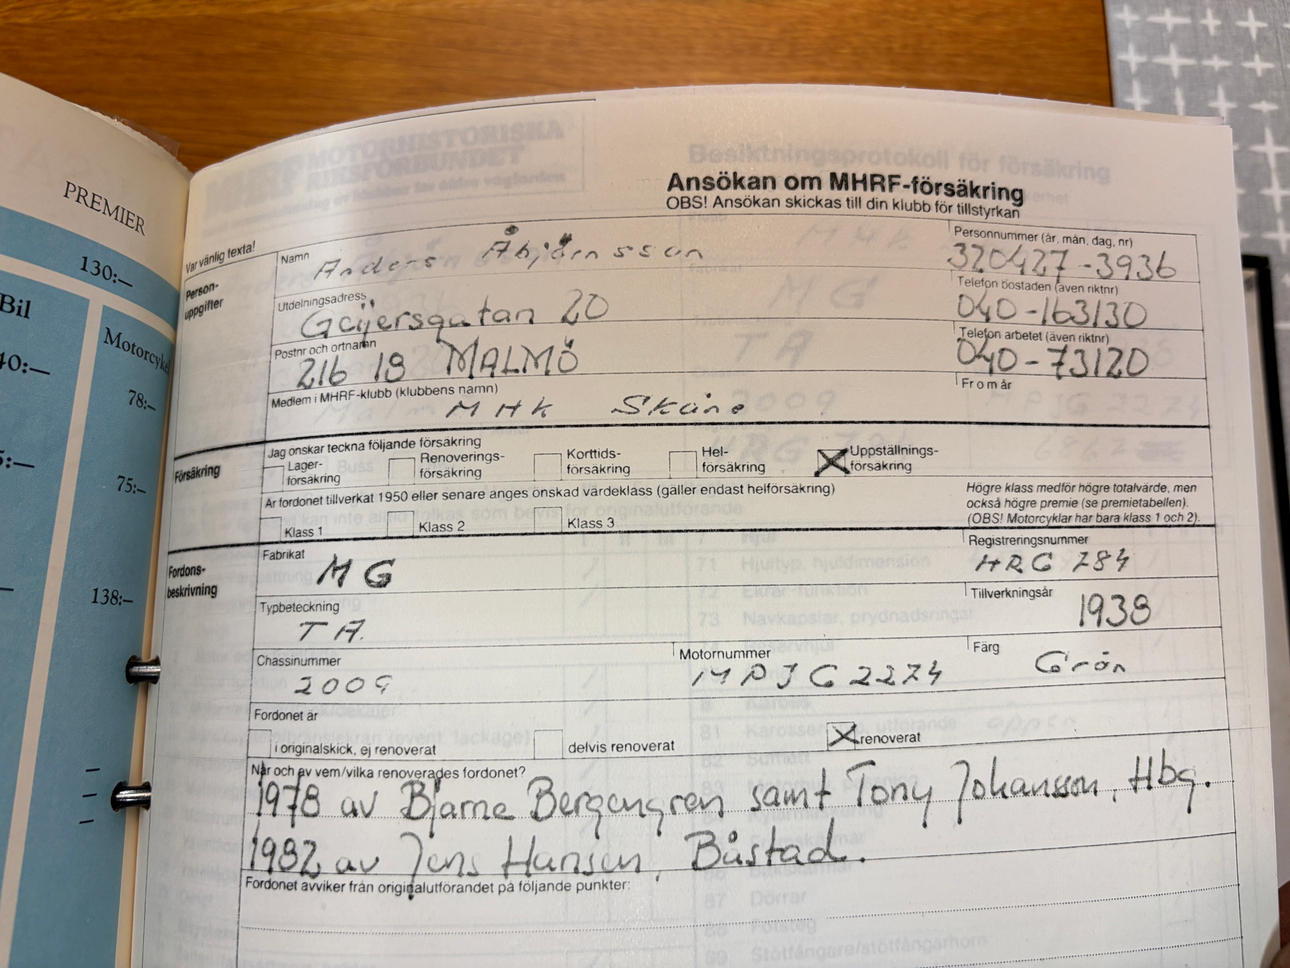 PREMIER
130:—
Bil
Motorcyke
40:—
78:—
5:—
75:—
138:—
Ansökan om MHRF-försäkring
OBS! Ansökan skickas till din klubb för tillstyrkan
Var vänlig texta!
Person-
uppgifter
Namn
Anders Åbjörnsson
Personnummer (år, mån, dag, nr)
320427-3936
Utdelningsadress
Geijersgatan 20
Telefon bostaden (även riktnr)
040-163130
Postnr och ortnamn
216 18 MALMÖ
Telefon arbetet (även riktnr)
040-73120
Medlem i MHRF-klubb (klubbens namn)
MHK Skåne
Fr o m år
Försäkring
Jag önskar teckna följande försäkring
Lager-
försäkring
Renoverings-
försäkring
Korttids-
försäkring
Hel-
försäkring
Uppställnings-
försäkring
Är fordonet tillverkat 1950 eller senare anges önskad värdeklass (gäller endast helförsäkring)
Klass 1
Klass 2
Klass 3
Högre klass medför högre totalvärde, men
också högre premie (se premietabellen).
(OBS! Motorcyklar har bara klass 1 och 2).
Fordons-
beskrivning
Fabrikat
MG
Registreringsnummer
HRG 784
Typbeteckning
TA.
Tillverkningsår
1938
Chassinummer
2009
Motornummer
MPJG2274
Färg
Grön
Fordonet är
i originalskick, ej renoverat
delvis renoverat
renoverat
När och av vem/vilka renoverades fordonet?
1978 av Bjarne Bergengren samt Tony Johansson, Hbg.
1982 av Jens Hansen, Båstad.
Fordonet avviker från originalutförandet på följande punkter: